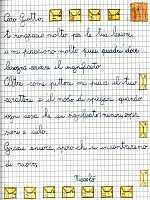 Caro Giotto,
ti ringrazio molto per la tua lezione
e mi piacciono molto i tuoi quadri dove
bisogna cercare il significato.
Altre cose pittore mi piace il tuo
carattere e il modo di spiegare quando
ogni cosa che ha significato
sera e
Grazie ancora spero che ci incontreremo
di nuovo,
Niccolò